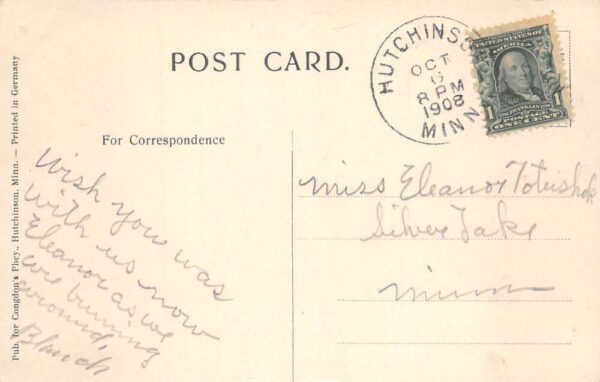 POST CARD.
HUTCHINSON
OCT
6
8 PM
1908
MINN
UNITED STATES OF
AMERICA
1706 FRANKLIN 1790
1 POSTAGE 1
ONE CENT
For Correspondence
Wish you was
with us now
Eleanor as we
are buming
around,
Blanch
Miss Eleanor Totushek
Silver Lake
Minn
Pub. for Congdon's Phcy., Hutchinson, Minn. — Printed in Germany